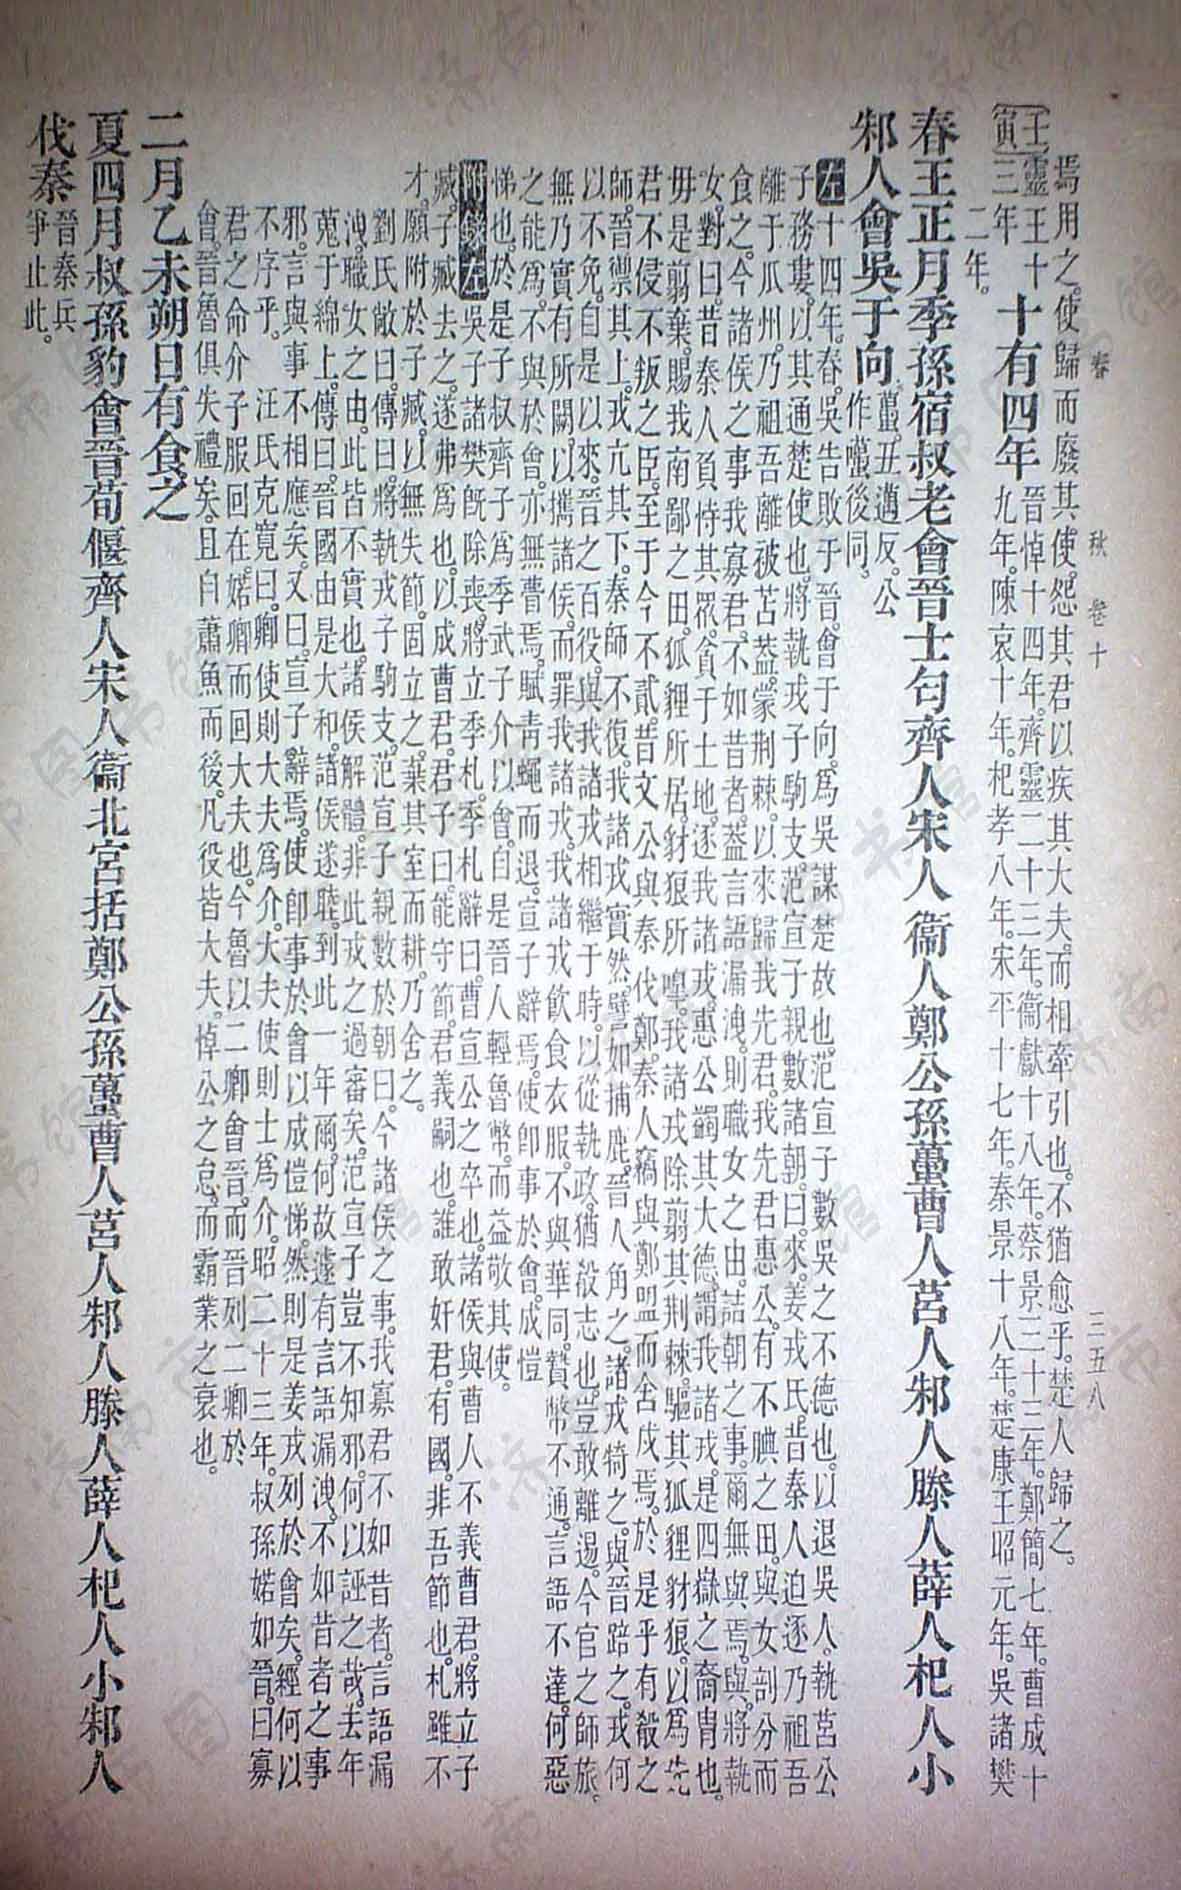 春　秋　卷十　三五八
焉用之。使歸而廢其使。怨其君以疾其大夫。而相牽引也。不猶愈乎。楚人歸之。
〔壬寅〕靈王十三年
十有四年
晉悼十四年。齊靈二十三年。衞獻十八年。蔡景三十三年。鄭簡七年。曹成十
九年。陳哀十年。杞孝八年。宋平十七年。秦景十八年。楚康王昭元年。吳諸樊
二年。
春王正月季孫宿叔老會晉士匄齊人宋人衞人鄭公孫蠆曹人莒人邾人滕人薛人杞人小
邾人會吳于向
蠆。丑邁反。公
作囆。後同。
左十四年。春。吳告敗于晉。會于向。爲吳謀楚故也。范宣子數吳之不德也。以退吳人。執莒公
子務婁。以其通楚使也。將執戎子駒支。范宣子親數諸朝。曰。來。姜戎氏。昔秦人迫逐乃祖吾
離于瓜州。乃祖吾離被苫蓋。蒙荆棘。以來歸我先君。我先君惠公。有不腆之田。與女剖分而
食之。今諸侯之事我寡君。不如昔者。蓋言語漏洩。則職女之由。詰朝之事。爾無與焉。與。將執
女。對曰。昔秦人負恃其眾。貪于土地。逐我諸戎。惠公蠲其大德。謂我諸戎。是四嶽之裔胄也。
毋是翦棄。賜我南鄙之田。狐貍所居。豺狼所嘷。我諸戎除翦其荆棘。驅其狐貍豺狼。以爲先
君不侵不叛之臣。至于今不貳。昔文公與秦伐鄭。秦人竊與鄭盟而舍戍焉。於是乎有殽之
師。晉禦其上。戎亢其下。秦師不復。我諸戎實然。譬如捕鹿。晉人角之。諸戎犄之。與晉踣之。戎何
以不免。自是以來。晉之百役。與我諸戎相繼于時。以從執政。猶殽志也。豈敢離逷。今官之師旅。
無乃實有所闕。以攜諸侯。而罪我諸戎。我諸戎飲食衣服。不與華同。贄幣不通。言語不達。何惡
之能爲。不與於會。亦無瞢焉。賦青蠅而退。宣子辭焉。使卽事於會。成愷
悌也。於是子叔齊子爲季武子介以會。自是晉人輕魯幣。而益敬其使。
附錄左吳子諸樊旣除喪。將立季札。季札辭曰。曹宣公之卒也。諸侯與曹人不義曹君。將立子
臧。子臧去之。遂弗爲也。以成曹君。君子曰。能守節。君義嗣也。誰敢奸君。有國。非吾節也。札雖不
才。願附於子臧。以無失節。固立之。棄其室而耕。乃舍之。
劉氏敞曰。傳曰。將執戎子駒支。范宣子親數於朝曰。今諸侯之事我寡君不如昔者。言語漏
洩。職女之由。此皆不實也。諸侯解體。非此戎之過審矣。范宣子豈不知邪。何以誣之哉。去年
蒐于綿上。傳曰。晉國由是大和。諸侯遂睦。到此一年爾。何故遽有言語漏洩。不如昔者之事
邪。言與事不相應矣。又曰。宣子辭焉。使卽事於會以成愷悌。然則是姜戎列於會矣。經何以
不序乎。　汪氏克寬曰。卿使則大夫爲介。大夫使則士爲介。昭二十三年。叔孫婼如晉。曰寡
君之命介子服回在。婼卿而回大夫也。今魯以二卿會晉。而晉列二卿於
會。晉魯俱失禮矣。且自蕭魚而後。凡役皆大夫。悼公之怠。而霸業之衰也。
二月乙未朔日有食之
夏四月叔孫豹會晉荀偃齊人宋人衞北宮括鄭公孫蠆曹人莒人邾人滕人薛人杞人小邾人
伐秦
晉秦兵
爭止此。